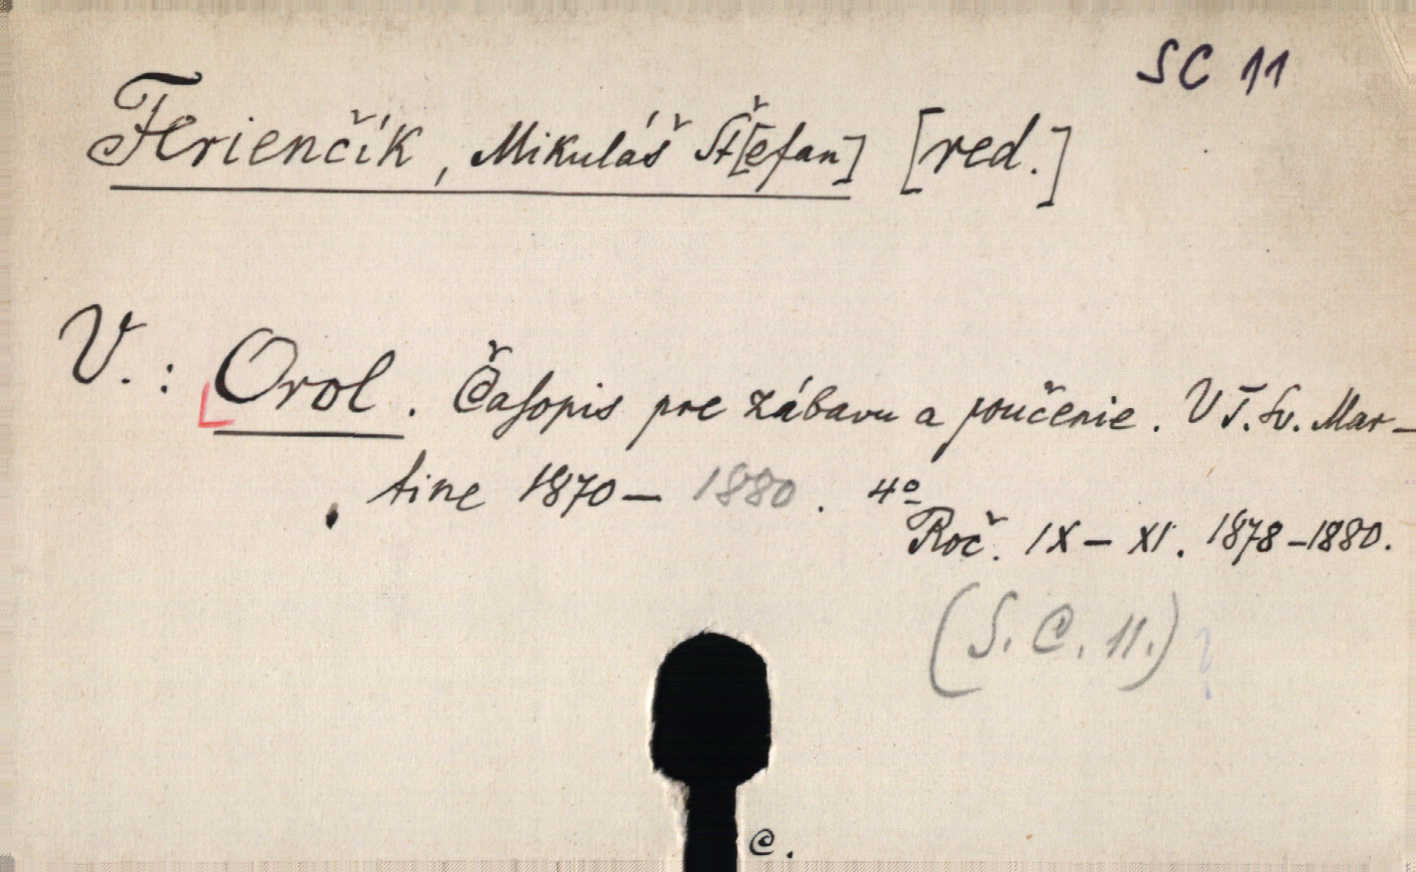 SC 11
Ferienčík, Mikuláš Št[efan] [red.]
V.: Orol. Časopis pre zábavu a poučenie. V T. Sv. Mar-
tine 1870- 1880. 4º
Roč. IX - XI. 1878-1880.
(S. C. 11.)
C.